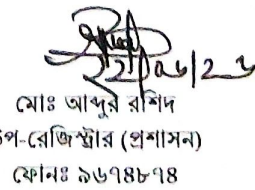 মোঃ আব্দুর রশিদ
উপ-রেজিস্ট্রার (প্রশাসন)
ফোনঃ ৯৬৭৪৮৭৪